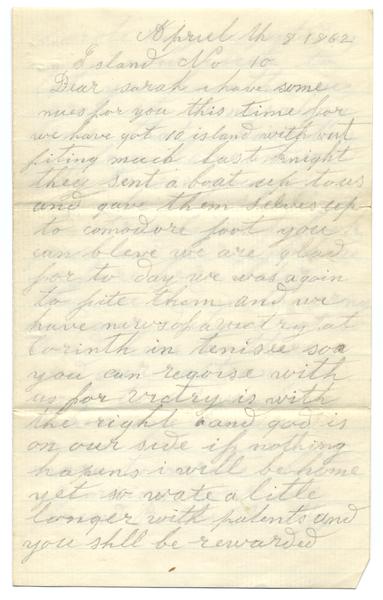 Apriel th 8 1862
Island No 10
Dear sarah i have some
nues for you this time for
we have got 10 island with out
fiting much last night
they sent a boat up to us
and gave them selves up
to comodore foot you
can bleve we are glad
for to day we was again
to fite them and we
have news of a victry at
Corinth in tenisee soa
you can regoise with
us for victry is with
the right and god is
on our side if nothing
hapens i will be home
yet so wate a litle
longer with patents and
you shll be rewarded